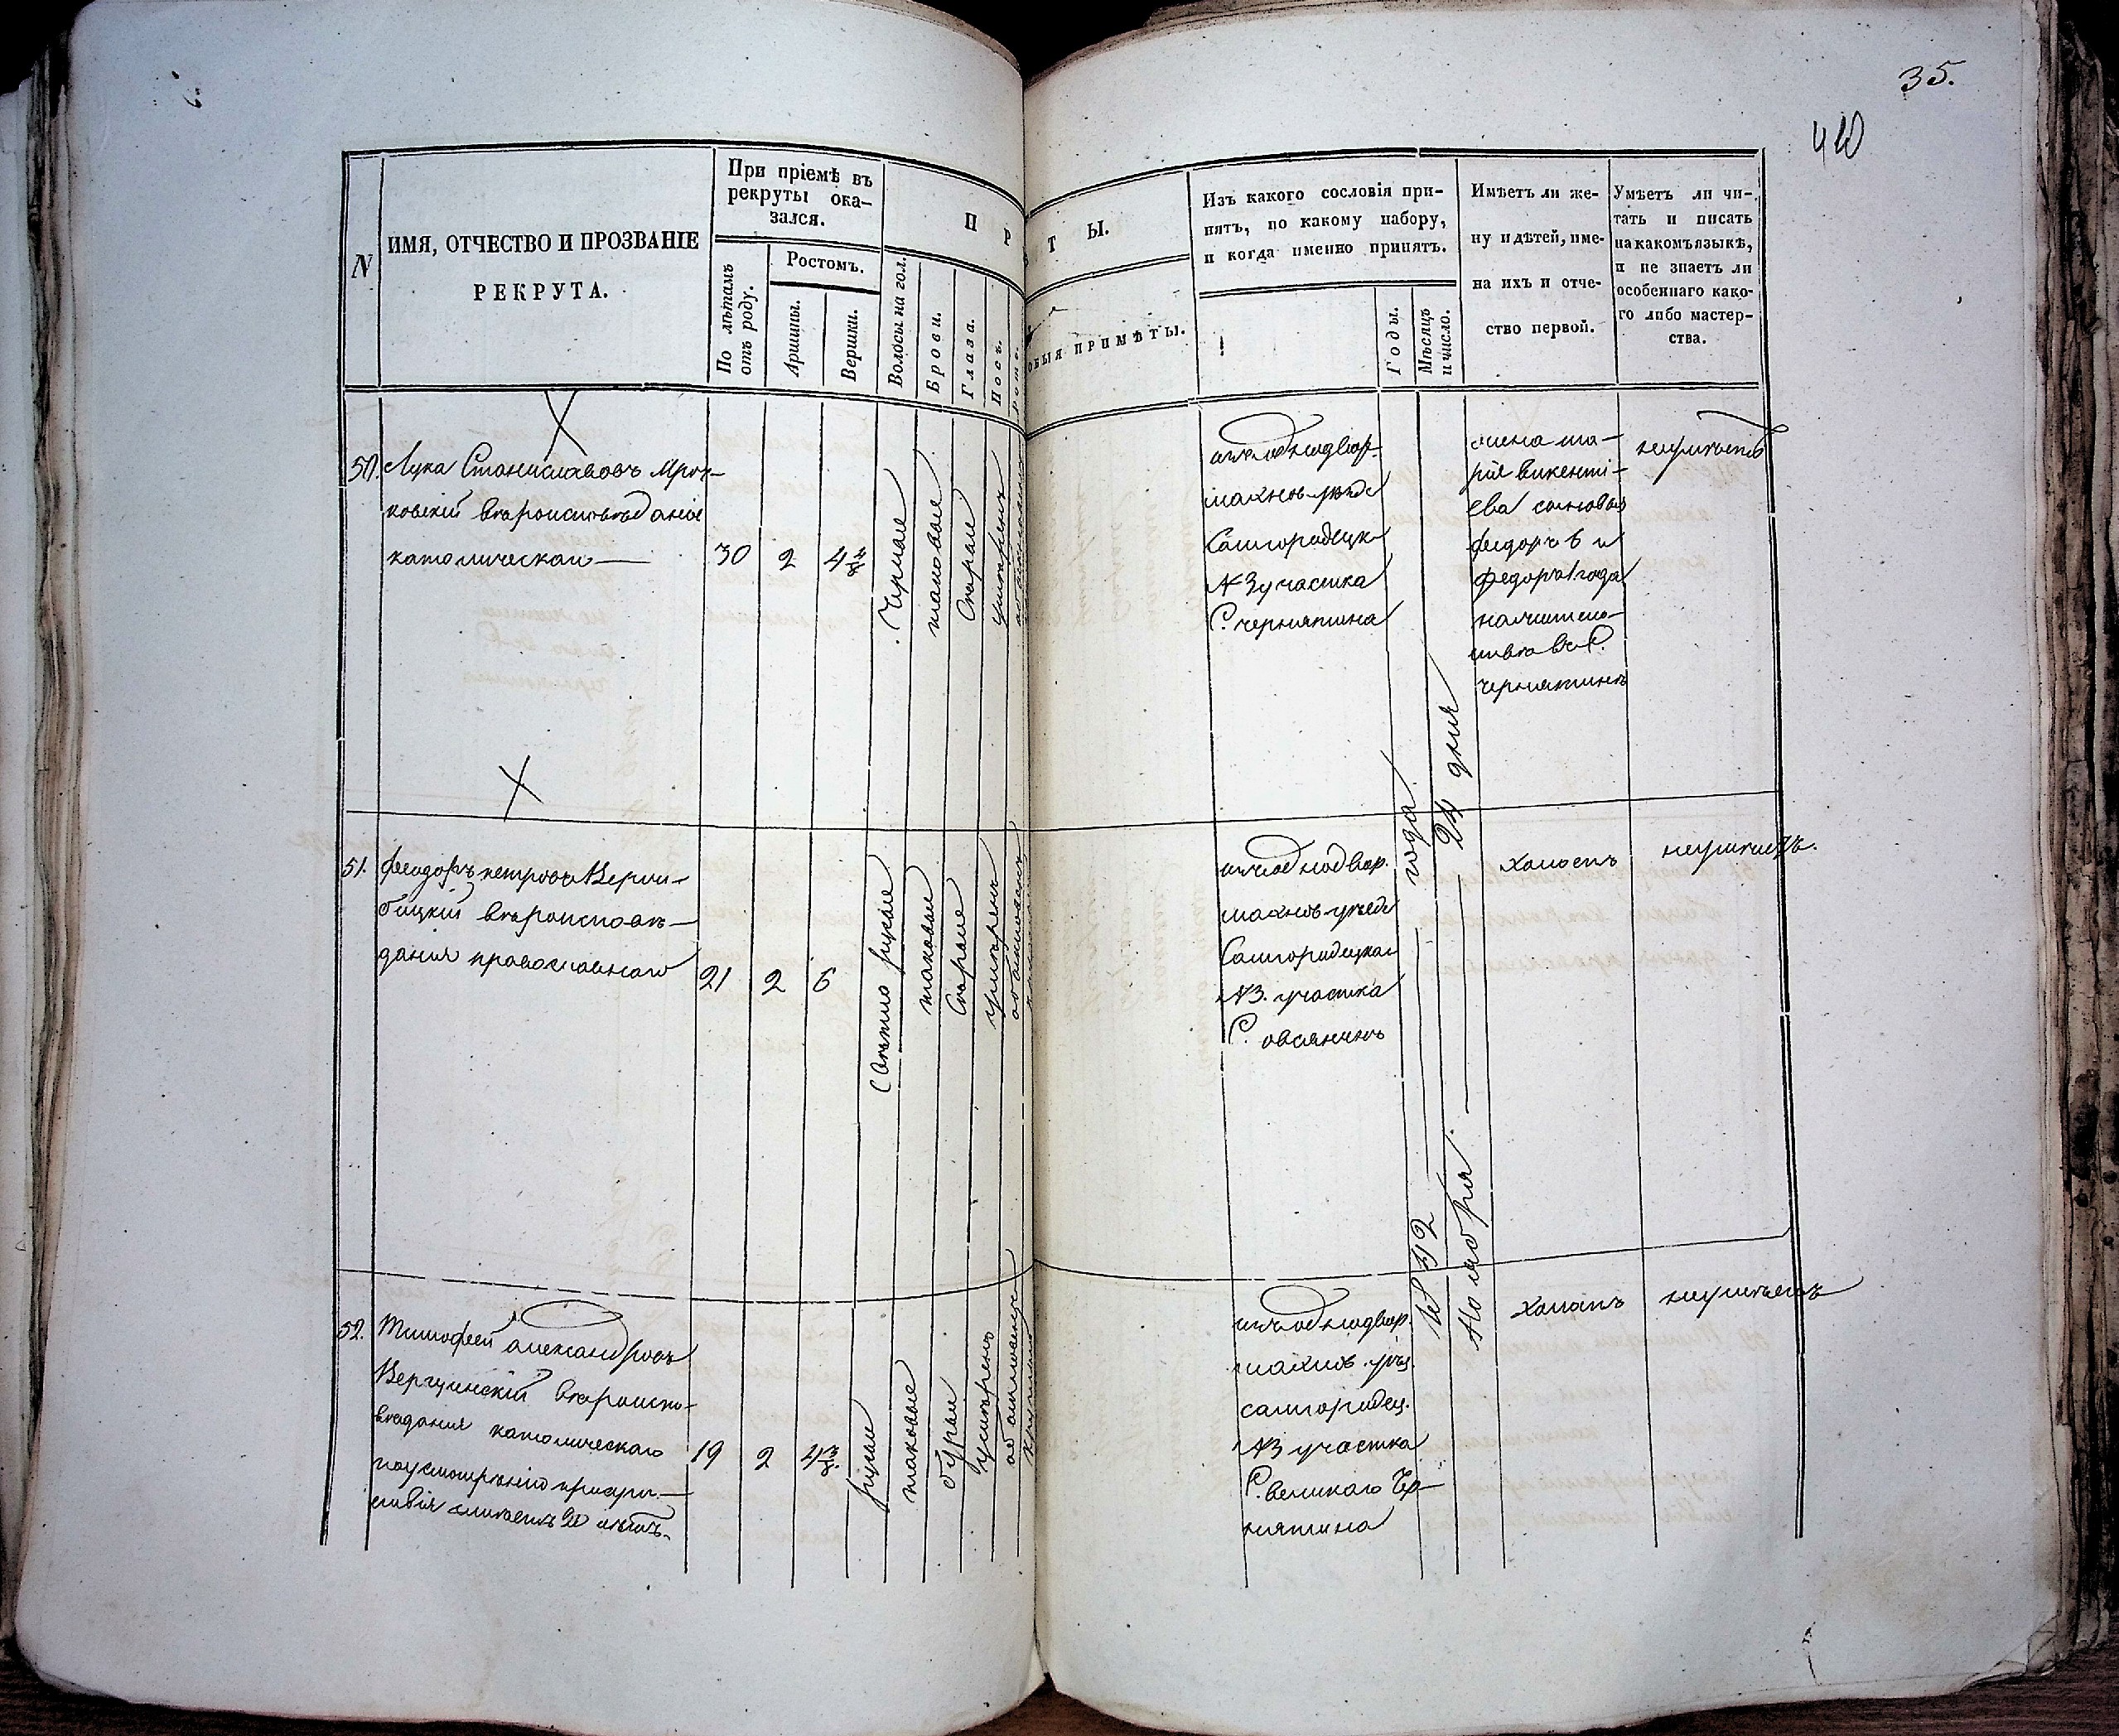 35.
410
N
ИМЯ, ОТЧЕСТВО И ПРОЗВАНІЕ
РЕКРУТА.
При пріемѣ въ
рекруты ока-
зался.
По лѣтамъ
отъ роду.
Ростомъ.
Аршины.
Вершки.
П
Волосы на гол.
Брови.
Глаза.
Носъ.
Т Ы.
ОБЫЯ ПРИМѢТЫ.
Изъ какого сословія при-
нятъ, по какому набору,
и когда именно принятъ.
Годы.
Мѣсяцъ
и число.
Имѣетъ ли же-
ну и дѣтей, име-
на ихъ и отче-
ство первой.
Умѣетъ ли чи-
тать и писать
на какомъ языкѣ,
и не знаетъ ли
особеннаго како-
го либо мастер-
ства.
50.
Лука Станиславовъ
вѣроисповѣданія
католическаго
30
2
4 4/8
Черные
таковые
Сѣрые
умѣренъ
изъ однодвор.
махнов. уѣзда
Самгородецк.
N 3 участка
С. Чернятина
жена Ма-
рія Викенті-
ева сыновья
Федоръ 6 и
Федоръ 1 года
въ С.
Чернятинѣ
неумѣетъ
51.
Феодоръ Петровъ Верни-
бицкій вѣроисповѣ-
данія православнаго
21
2
6
Свѣтло русые
таковые
Сѣрые
умѣренъ
изъ однодвор.
махнов. уѣзда
Самгородецкаго
N 3. участка
С. Овсяникъ
холостъ
неумѣетъ.
52.
Тимофей Александровъ
вѣроиспо-
вѣданія католическаго
поусмотренію присут-
ствія имѣетъ 20 лѣтъ.
19
2
4 3/8.
русые
таковые
бурые
умѣренъ
изъ однодвор.
махнов. уѣз.
самгородец.
N 3 участка
С. Великаго Чер-
нятина
холостъ
неумѣетъ
года
Ноября 24 дня